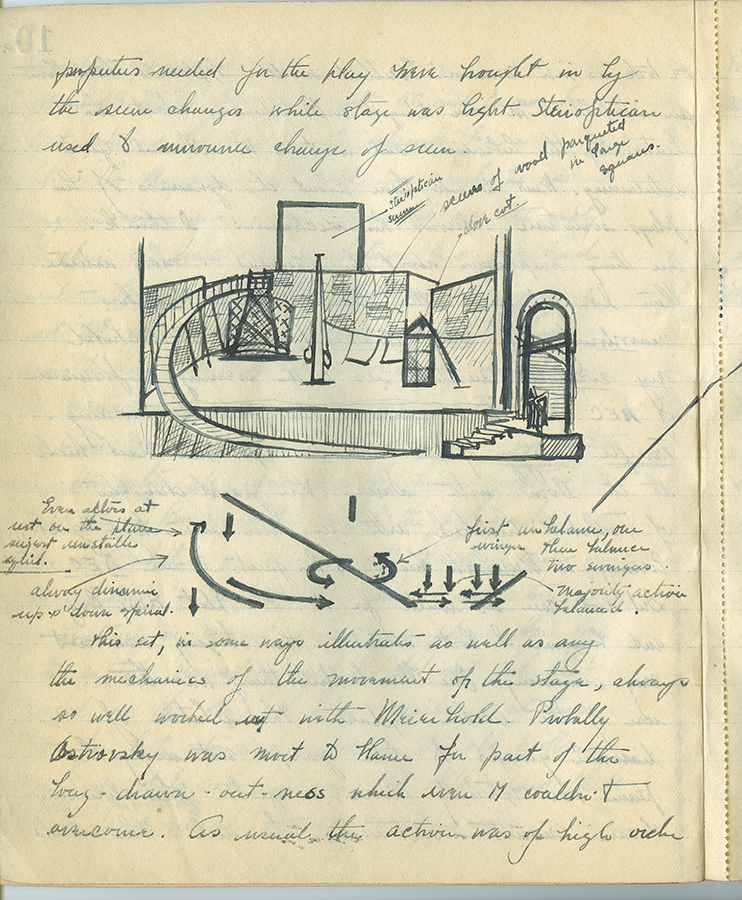 properties needed for the play were brought in by
the scene changes while stage was light. Steroptican
used to announce change of scene.
steroptican
screen
screens of wood parqueted
in large
squares.
dove cot.
Even actors at
rest on the plane
sugest unstable
alway dinamic
up & down spiral.
first unbalance, one
swinger then balance
two swingers
majority action
balanced.
this set, in some ways illustrates as well as any
the mechanics of the movement of the stage, always
so well worked out with Meierhold. Probally
Ostrovsky was most to blame for part of the
long-drawn-out-ness which even M couldn't
overcome. As usual the action was of high order